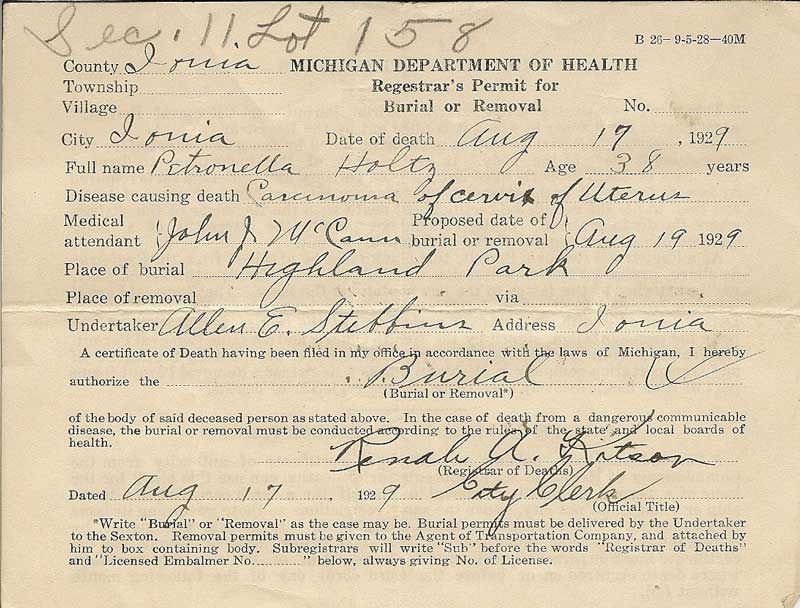 Sec. 11 Lot 158
B 26—9-5-28—40M
County Ionia MICHIGAN DEPARTMENT OF HEALTH
Township Regestrar's Permit for
Village Burial or Removal No.
City Ionia Date of death Aug 17, 1929
Full name Petronella Holtz Age 38 years
Disease causing death Carcinoma of cervix of Uterus
Medical attendant John J. McCann Proposed date of burial or removal Aug 19 1929
Place of burial Highland Park
Place of removal via
Undertaker Allen E. Stebbins Address Ionia
A certificate of Death having been filed in my office in accordance with the laws of Michigan, I hereby
authorize the Burial
(Burial or Removal*)
of the body of said deceased person as stated above. In the case of death from a dangerous communicable
disease, the burial or removal must be conducted according to the rules of the state and local boards of
health.
A. Kitson
(Registrar of Deaths)
Dated Aug 17, 1929 City Clerk
(Official Title)
*Write "Burial" or "Removal" as the case may be. Burial permits must be delivered by the Undertaker
to the Sexton. Removal permits must be given to the Agent of Transportation Company, and attached by
him to box containing body. Subregistrars will write "Sub" before the words "Registrar of Deaths"
and "Licensed Embalmer No............" below, always giving No. of License.